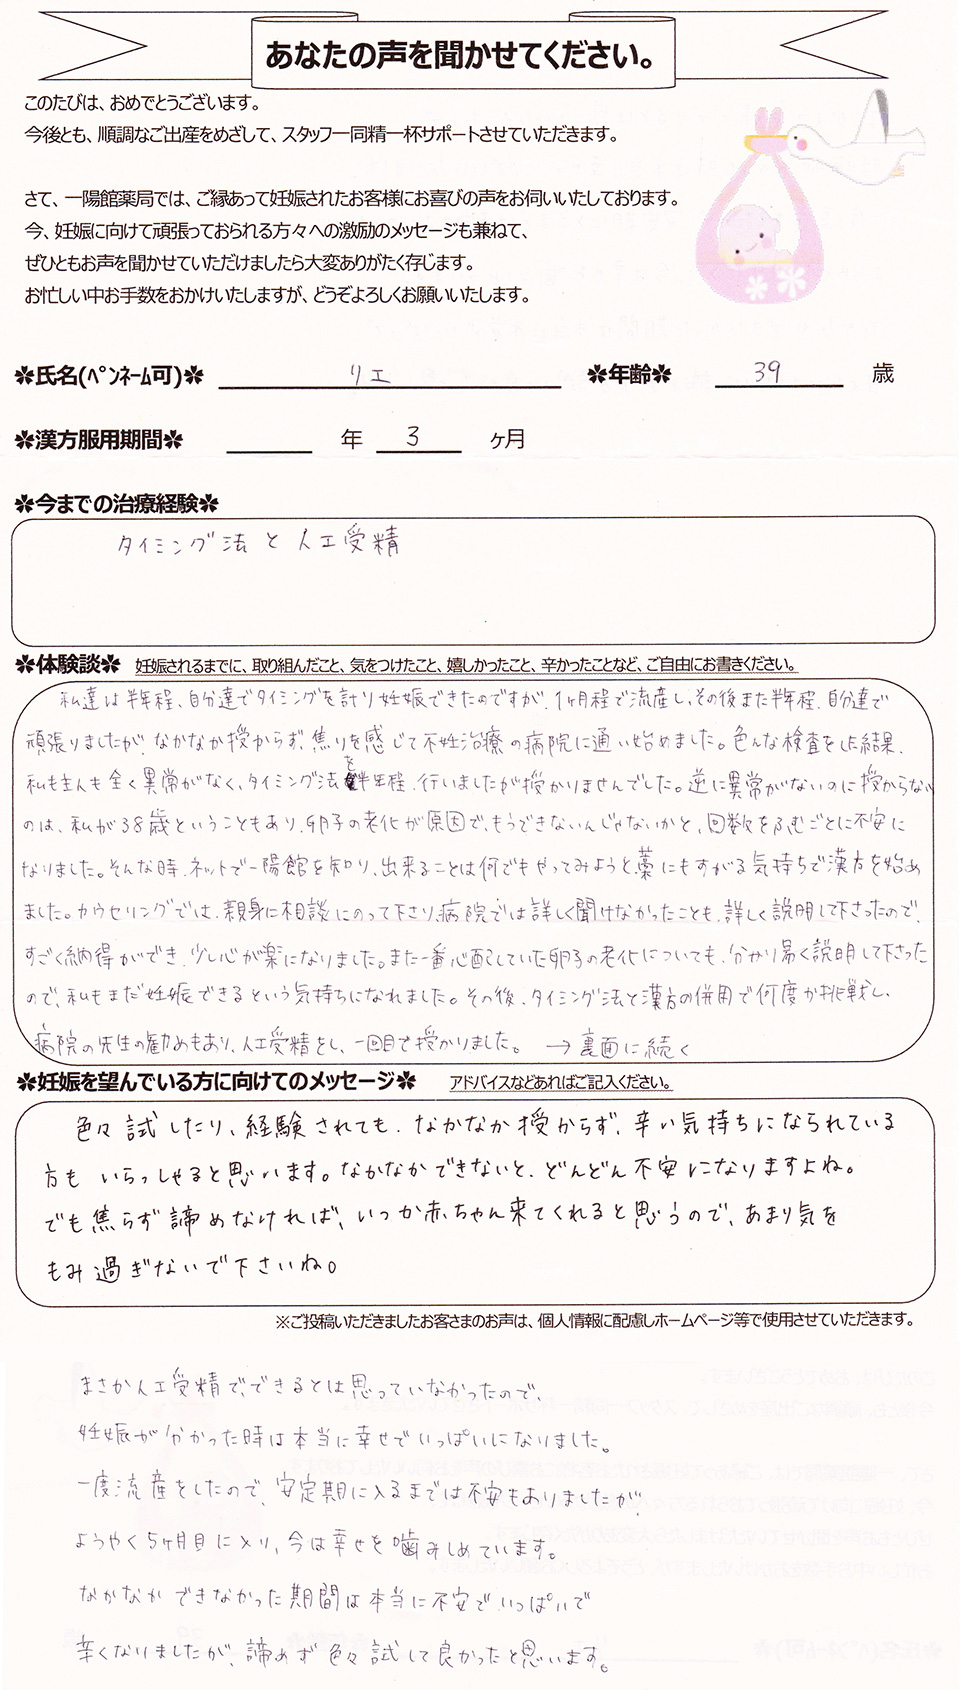 あなたの声を聞かせてください。
このたびは、おめでとうございます。
今後とも、順調なご出産をめざして、スタッフ一同精一杯サポートさせていただきます。
さて、一陽館薬局では、ご縁あって妊娠されたお客様にお喜びの声をお伺いいたしております。
今、妊娠に向けて頑張っておられる方々への激励のメッセージも兼ねて、
ぜひともお声を聞かせていただけましたら大変ありがたく存じます。
お忙しい中お手数をおかけいたしますが、どうぞよろしくお願いいたします。
✽氏名(ﾍﾟﾝﾈｰﾑ可)✽ リエ ✽年齢✽ 39 歳
✽漢方服用期間✽ 年 3 ヶ月
✽今までの治療経験✽
タイミング法と人工受精
✽体験談✽ 妊娠されるまでに、取り組んだこと、気をつけたこと、嬉しかったこと、辛かったことなど、ご自由にお書きください。
私達は半年程、自分達でタイミングを計り妊娠できたのですが、1ヶ月程で流産し、その後また半年程、自分達で
頑張りましたが、なかなか授からず、焦りを感じて不妊治療の病院に通い始めました。色んな検査をした結果、
私も主人も全く異常がなく、タイミング法を半年程、行いましたが授かりませんでした。逆に異常がないのに授からない
のは、私が38歳ということもあり、卵子の老化が原因で、もうできないんじゃないかと、回数をふむごとに不安に
なりました。そんな時、ネットで一陽館を知り、出来ることは何でもやってみようと、藁にもすがる気持ちで漢方を始め
ました。カウセリングでは、親身に相談にのって下さり、病院では詳しく聞けなかったことも、詳しく説明して下さったので、
すごく納得ができ、少し心が楽になりました。また一番心配していた卵子の老化についても、分かり易く説明して下さった
ので、私もまだ妊娠できるという気持ちになれました。その後、タイミング法と漢方の併用で何度か挑戦し、
病院の先生の勧めもあり、人工受精をし、一回目で授かりました。 →裏面に続く
✽妊娠を望んでいる方に向けてのメッセージ✽ アドバイスなどあればご記入ください。
色々試したり、経験されても、なかなか授からず、辛い気持ちになられている
方もいらっしゃると思います。なかなかできないと、どんどん不安になりますよね。
でも焦らず諦めなければ、いつか赤ちゃん来てくれると思うので、あまり気を
もみ過ぎないで下さいね。
※ご投稿いただきましたお客さまのお声は、個人情報に配慮しホームページ等で使用させていただきます。
まさか人工受精で、できるとは思っていなかったので、
妊娠が分かった時は本当に幸せでいっぱいになりました。
一度流産をしたので、安定期に入るまでは不安もありましたが、
ようやく5ヶ月目に入り、今は幸せを噛みしめています。
なかなかできなかった期間は本当に不安でいっぱいで
辛くなりましたが、諦めず色々試して良かったと思います。